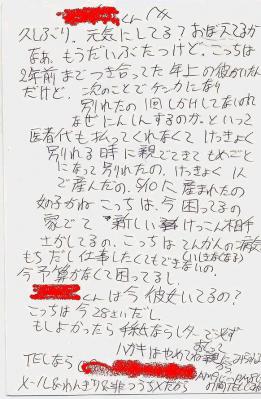 くんへ
久しぶり。元気にしてる?おぼえてるか
なあ。もうだいぶたつけど。こっちは
2年前までつき合ってた年上の彼がいたん
だけど、次のことでケンカになり
別れたの1回しかけしてないのに
なぜにんしんするのか。といって
医者代も払ってくれなくてけっきょく
別れる時に親でてきてもめごと
になって別れたの。けっきょく1人
で産んだの。5/10に産まれたの
女の子がね こっちは、今困ってるの
家でて新しいけっこん相手
さがしてるの。こっちはてんかんの病気
もちだし仕事したくてもできないの。
今予算がなくて困ってるし。
くんは今彼女いてるの?
こっちは今28さいだし。
もしよかったら手紙ならレターで必ず
ハガキはやめてね
TELなら